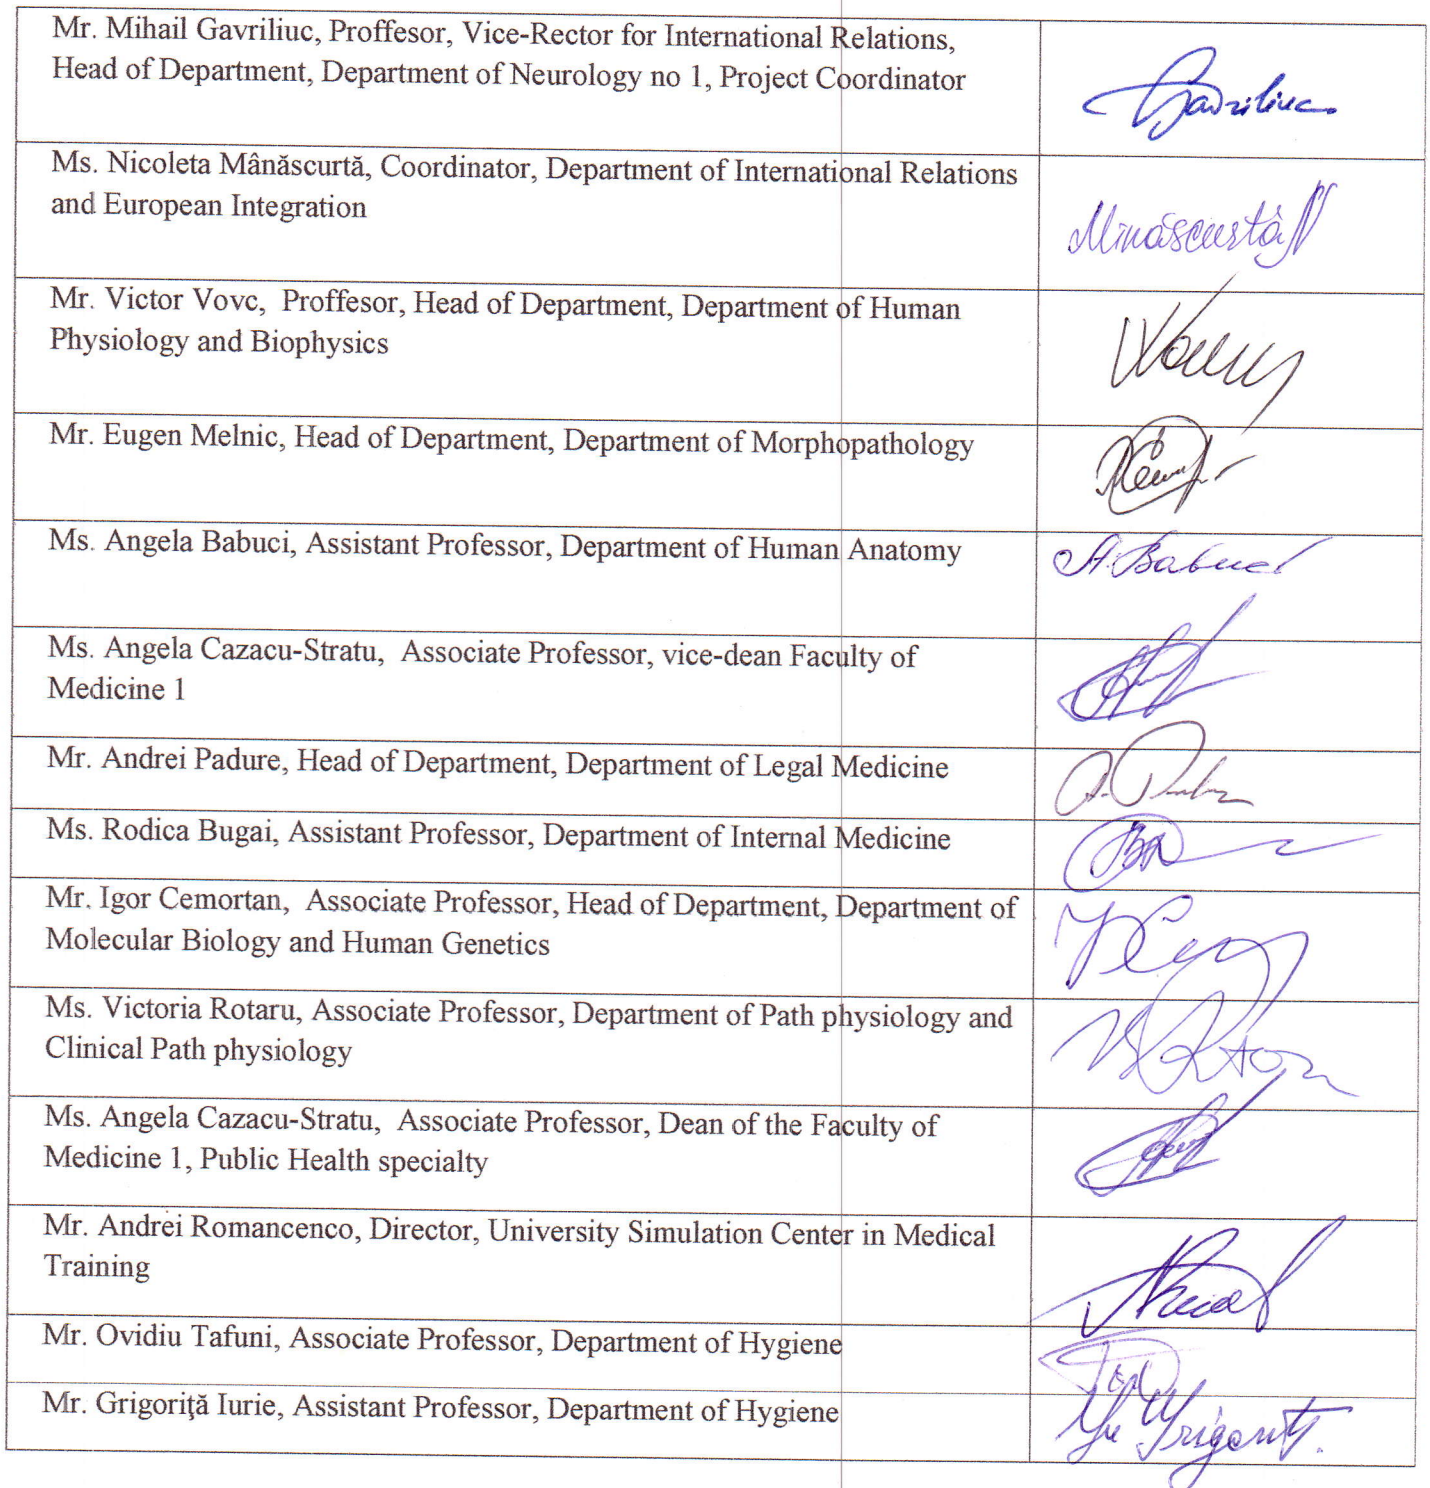 Mr. Mihail Gavriliuc, Proffesor, Vice-Rector for International Relations,
Head of Department, Department of Neurology no 1, Project Coordinator
Gavriliuc
Ms. Nicoleta Mânăscurtă, Coordinator, Department of International Relations
and European Integration
Mînăscurtă N
Mr. Victor Vovc,  Proffesor, Head of Department, Department of Human
Physiology and Biophysics
Mr. Eugen Melnic, Head of Department, Department of Morphopathology
Ms. Angela Babuci, Assistant Professor, Department of Human Anatomy
A. Babuci
Ms. Angela Cazacu-Stratu,  Associate Professor, vice-dean Faculty of
Medicine 1
Mr. Andrei Padure, Head of Department, Department of Legal Medicine
Ms. Rodica Bugai, Assistant Professor, Department of Internal Medicine
Mr. Igor Cemortan,  Associate Professor, Head of Department, Department of
Molecular Biology and Human Genetics
Ms. Victoria Rotaru, Associate Professor, Department of Path physiology and
Clinical Path physiology
Ms. Angela Cazacu-Stratu,  Associate Professor, Dean of the Faculty of
Medicine 1, Public Health specialty
Mr. Andrei Romancenco, Director, University Simulation Center in Medical
Training
Mr. Ovidiu Tafuni, Associate Professor, Department of Hygiene
Mr. Grigoriţă Iurie, Assistant Professor, Department of Hygiene